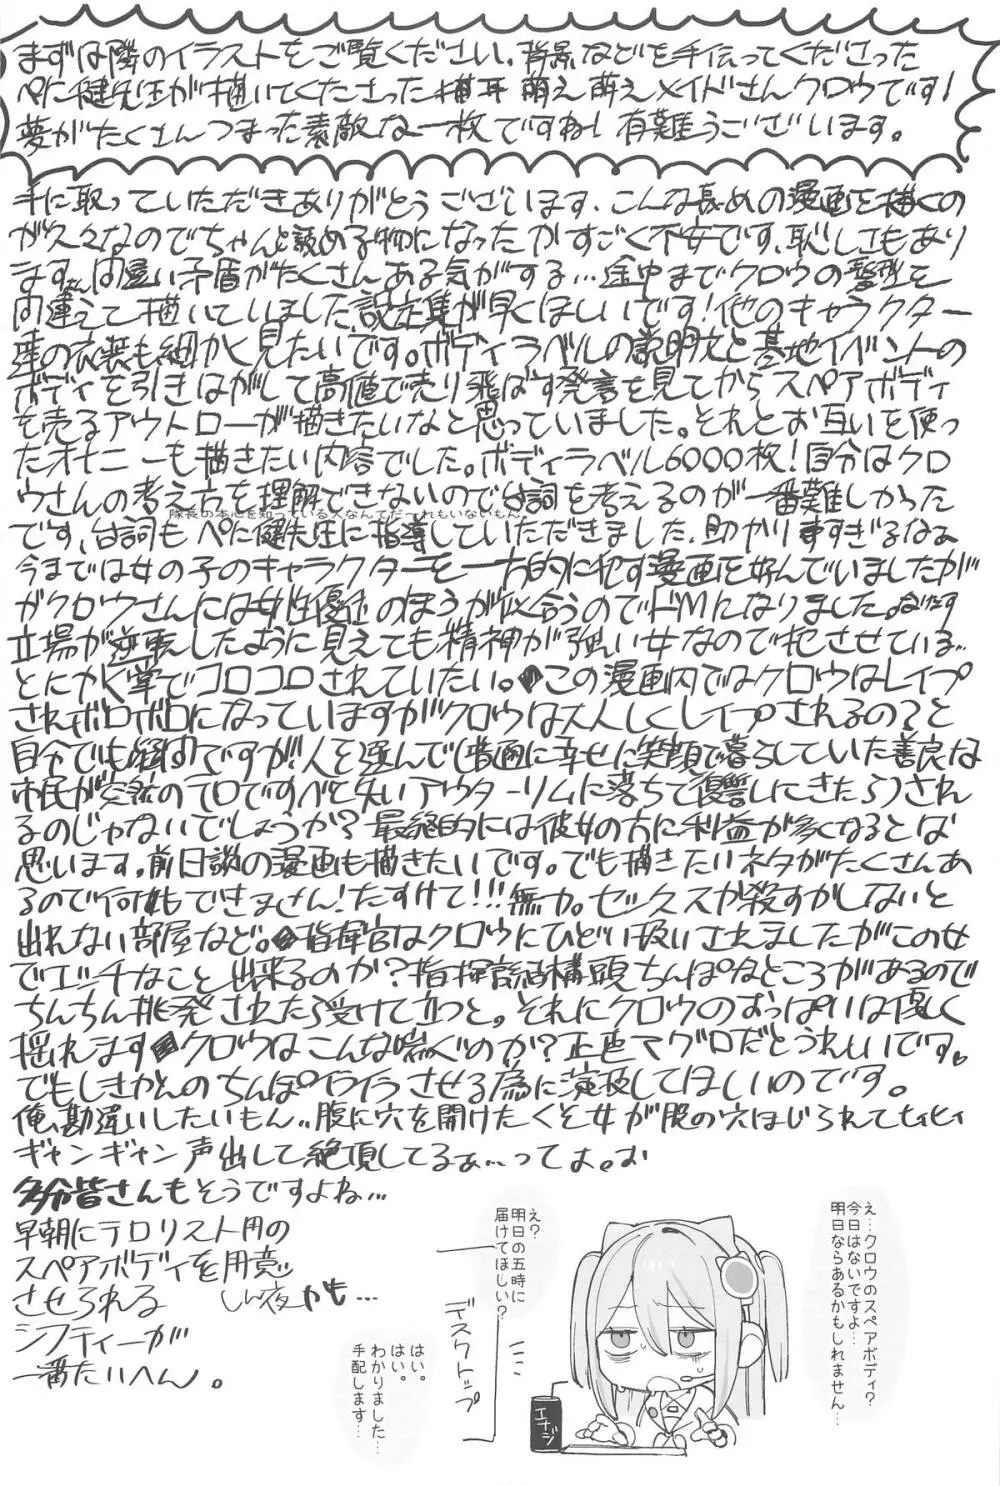 まずは隣のイラストをご覧ください。背景などを手伝ってくださった
ぺに健先生が描いてくださった猫耳萌え萌えメイドさんクロウです!
夢がたくさんつまった素敵な一枚ですね!有難うございます。
手に取っていただきありがとうございます、こんな長めの漫画を描くの
が久々なのでちゃんと読める物になったかすごく不安です、恥しくもあり
ます。間違い矛盾がたくさんある気がする…途中までクロウの髪型を
間違えて描いていました設定集が早くほしいです!他のキャラクター
達の衣装も細かく見たいです。ボディラベルの説明文と基地イベントの
ボディを引きはがして高値で売り飛ばす発言を見てからスペアボディ
を売るアウトローが描きたいなと思っていました。それとお互いを使っ
たオナニーも描きたい内容でした。ボディラベル6000枚!自分はクロ
ウさんの考え方を理解できないので台詞を考えるのが一番難しかった
隊長の本心を知っている人なんてだ〜れもいないもん。
です、台詞もぺに健先生に指導していただきました、助かりますすぎるなぁ
今までは女の子のキャラクターを一方的に犯す漫画を好んでいましたが
がクロウさんには女性優位のほうが似合うのでドMになりました。
立場が逆転したように見えても精神が強い女なので犯させている…
とにかく掌でコロコロされていたい。この漫画内ではクロウはレイプ
されボロボロになっていますがクロウは大人しくレイプされるの?と
自分でも疑問ですが!人を選んで(計画に幸せに笑顔で暮らしていた善良な
市民が突然のテロですべて失いアウターリムに落ちて復讐しにきたら)され
るのじゃないでしょうか?最終的には彼女の方に利益が多くなるとは
思います。前日談の漫画も描きたいです。でも描きたいネタがたくさんあ
るので何もできません!たすけて!!!無力。セックスか殺すかしないと
出れない部屋など。指揮官はクロウにひどい扱いされましたがこの女
でエッチなこと出来るのか?指揮官結構頭ちんぽなところがあるので
ちんちん挑発されたら受けて立つと。それにクロウのおっぱいは優しく
揺れます クロウはこんな喘ぐのか?正直マグロだとうれしいです。
でもしきかんのちんぽイライラさせる為に演技してほしいのです。
俺、勘違いしたいもん、腹に穴を開けたくそ女が股の穴ほじられてヒィヒィ
ギャンギャン声出して絶頂してるぁ…ってよ。お
多分皆さんもそうですよね…
早朝にテロリスト用の
スペアボディを用意
させられる しん夜かも…
シフティーが
一番たいへん。
え…クロウのスペアボディ?
今日はないですよ…
明日ならあるかもしれません…
え?
明日の五時に
届けてほしい?
はい。
はい。
わかりました…
手配します…
デスクトップ
エナジ